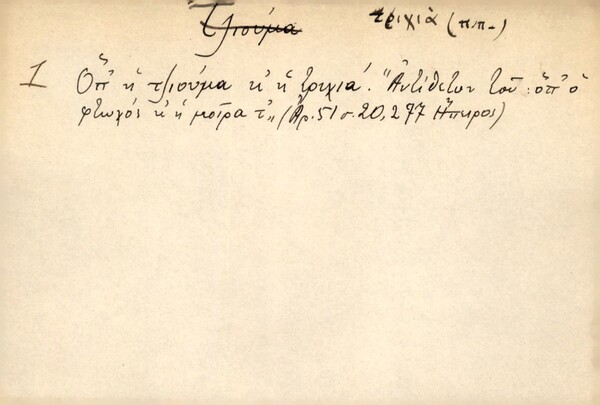 τζιούμα τριχιὰ (π.π.)
1 Ὅπ' ἡ τζιούμα κ' ἡ τριχιά. "Ἀντίθετον τοῦ : ὅπ' ὁ
φτωχός κ' ἡ μοῖρα τ'" (Ἀρ. 51 σ. 20, 277 Ἤπειρος)